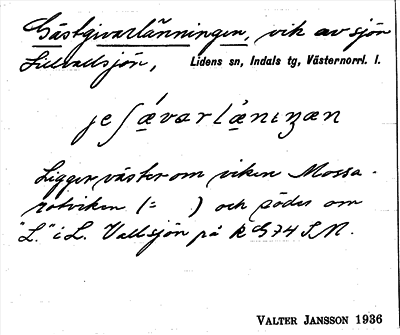 Gästgivarlänningen, vik av sjön
Lillvallsjön, Lidens sn, Indals tg, Västernorrl. l.
jeʃávarlànıŋæn
Ligger väster om viken Mossa-
rotviken (= ) och söder om
"L." i L. Vallsjön på k G 74 S.N.
VALTER JANSSON 1936